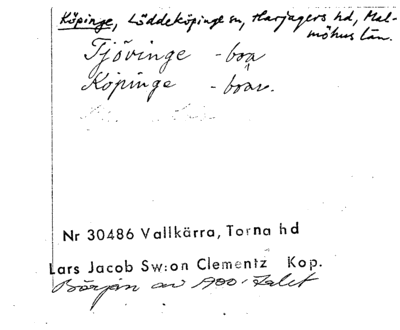 Köpinge, Löddeköpinge sn, Harjagers hd, Mal-
möhus län.
Tjövinge -boa
Köpinge -boar.
Nr 30486 Vallkärra, Torna hd
Lars Jacob Sw:on Clementz Kop.
Början av 1900-talet